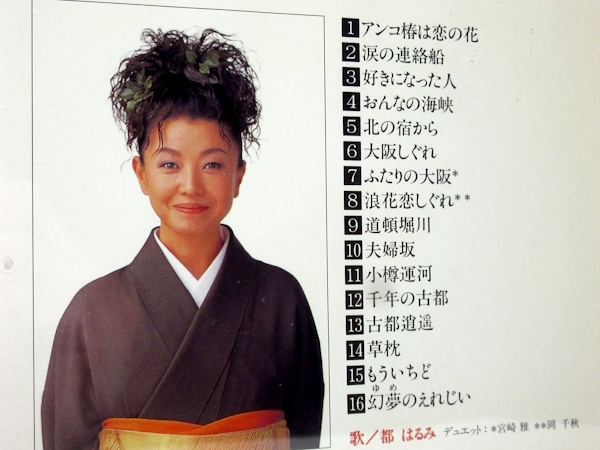 1 アンコ椿は恋の花
2 涙の連絡船
3 好きになった人
4 おんなの海峡
5 北の宿から
6 大阪しぐれ
7 ふたりの大阪*
8 浪花恋しぐれ**
9 道頓堀川
10 夫婦坂
11 小樽運河
12 千年の古都
13 古都逍遥
14 草枕
15 もういちど
ゆめ
16 幻夢のえれじい
歌／都 はるみ デュエット：*宮崎 雅 **岡 千秋